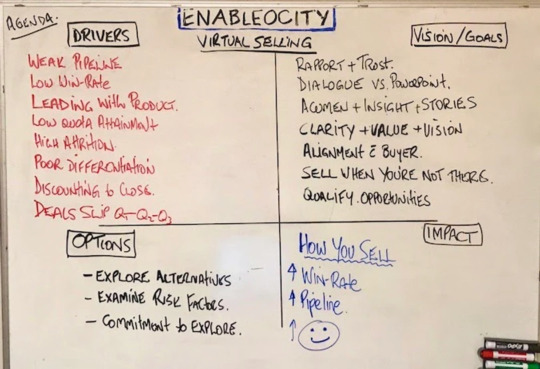 AGENDA:
ENABLEOCITY
VIRTUAL SELLING
DRIVERS
WEAK PIPELINE
LOW WIN-RATE
LEADING WITH PRODUCT.
LOW QUOTA ATTAINMENT
HIGH ATTRITION.
POOR DIFFERENTIATION
DISCOUNTING to CLOSE.
DEALS SLIP Q1-Q2-Q3
VISION/GOALS
RAPPORT + TRUST.
DIALOGUE VS. POWERPOINT.
ACUMEN + INSIGHT + STORIES
CLARITY + VALUE + VISION
ALIGNMENT c̄ BUYER.
SELL WHEN YOU'RE NOT THERE.
QUALIFY OPPORTUNITIES
OPTIONS
- EXPLORE ALTERNATIVES
- EXAMINE RISK FACTORS.
- COMMITMENT to EXPLORE.
IMPACT
HOW YOU SELL
↑ WIN-RATE
↑ PIPELINE
↑ ☺
EXPO